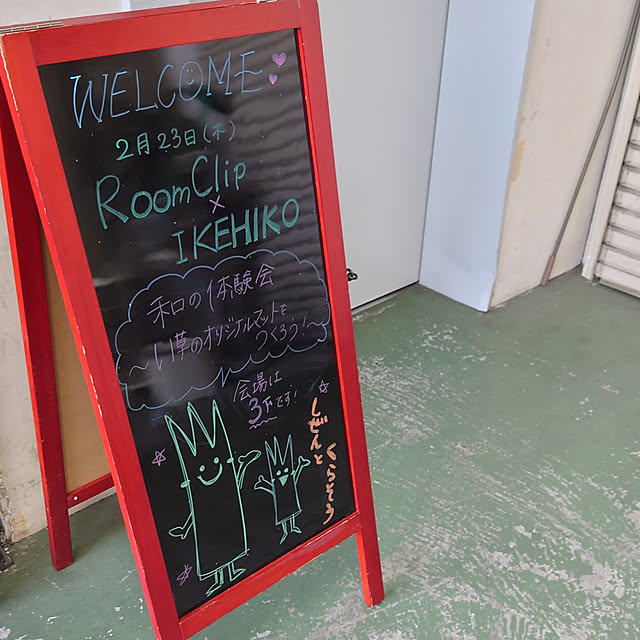 WELCOME
2月23日(木)
RoomClip
×
IKEHIKO
和の体験会
～い草のオリジナルマットを
つくろう!～
会場は
3Fです!
しぜんと
くらそう